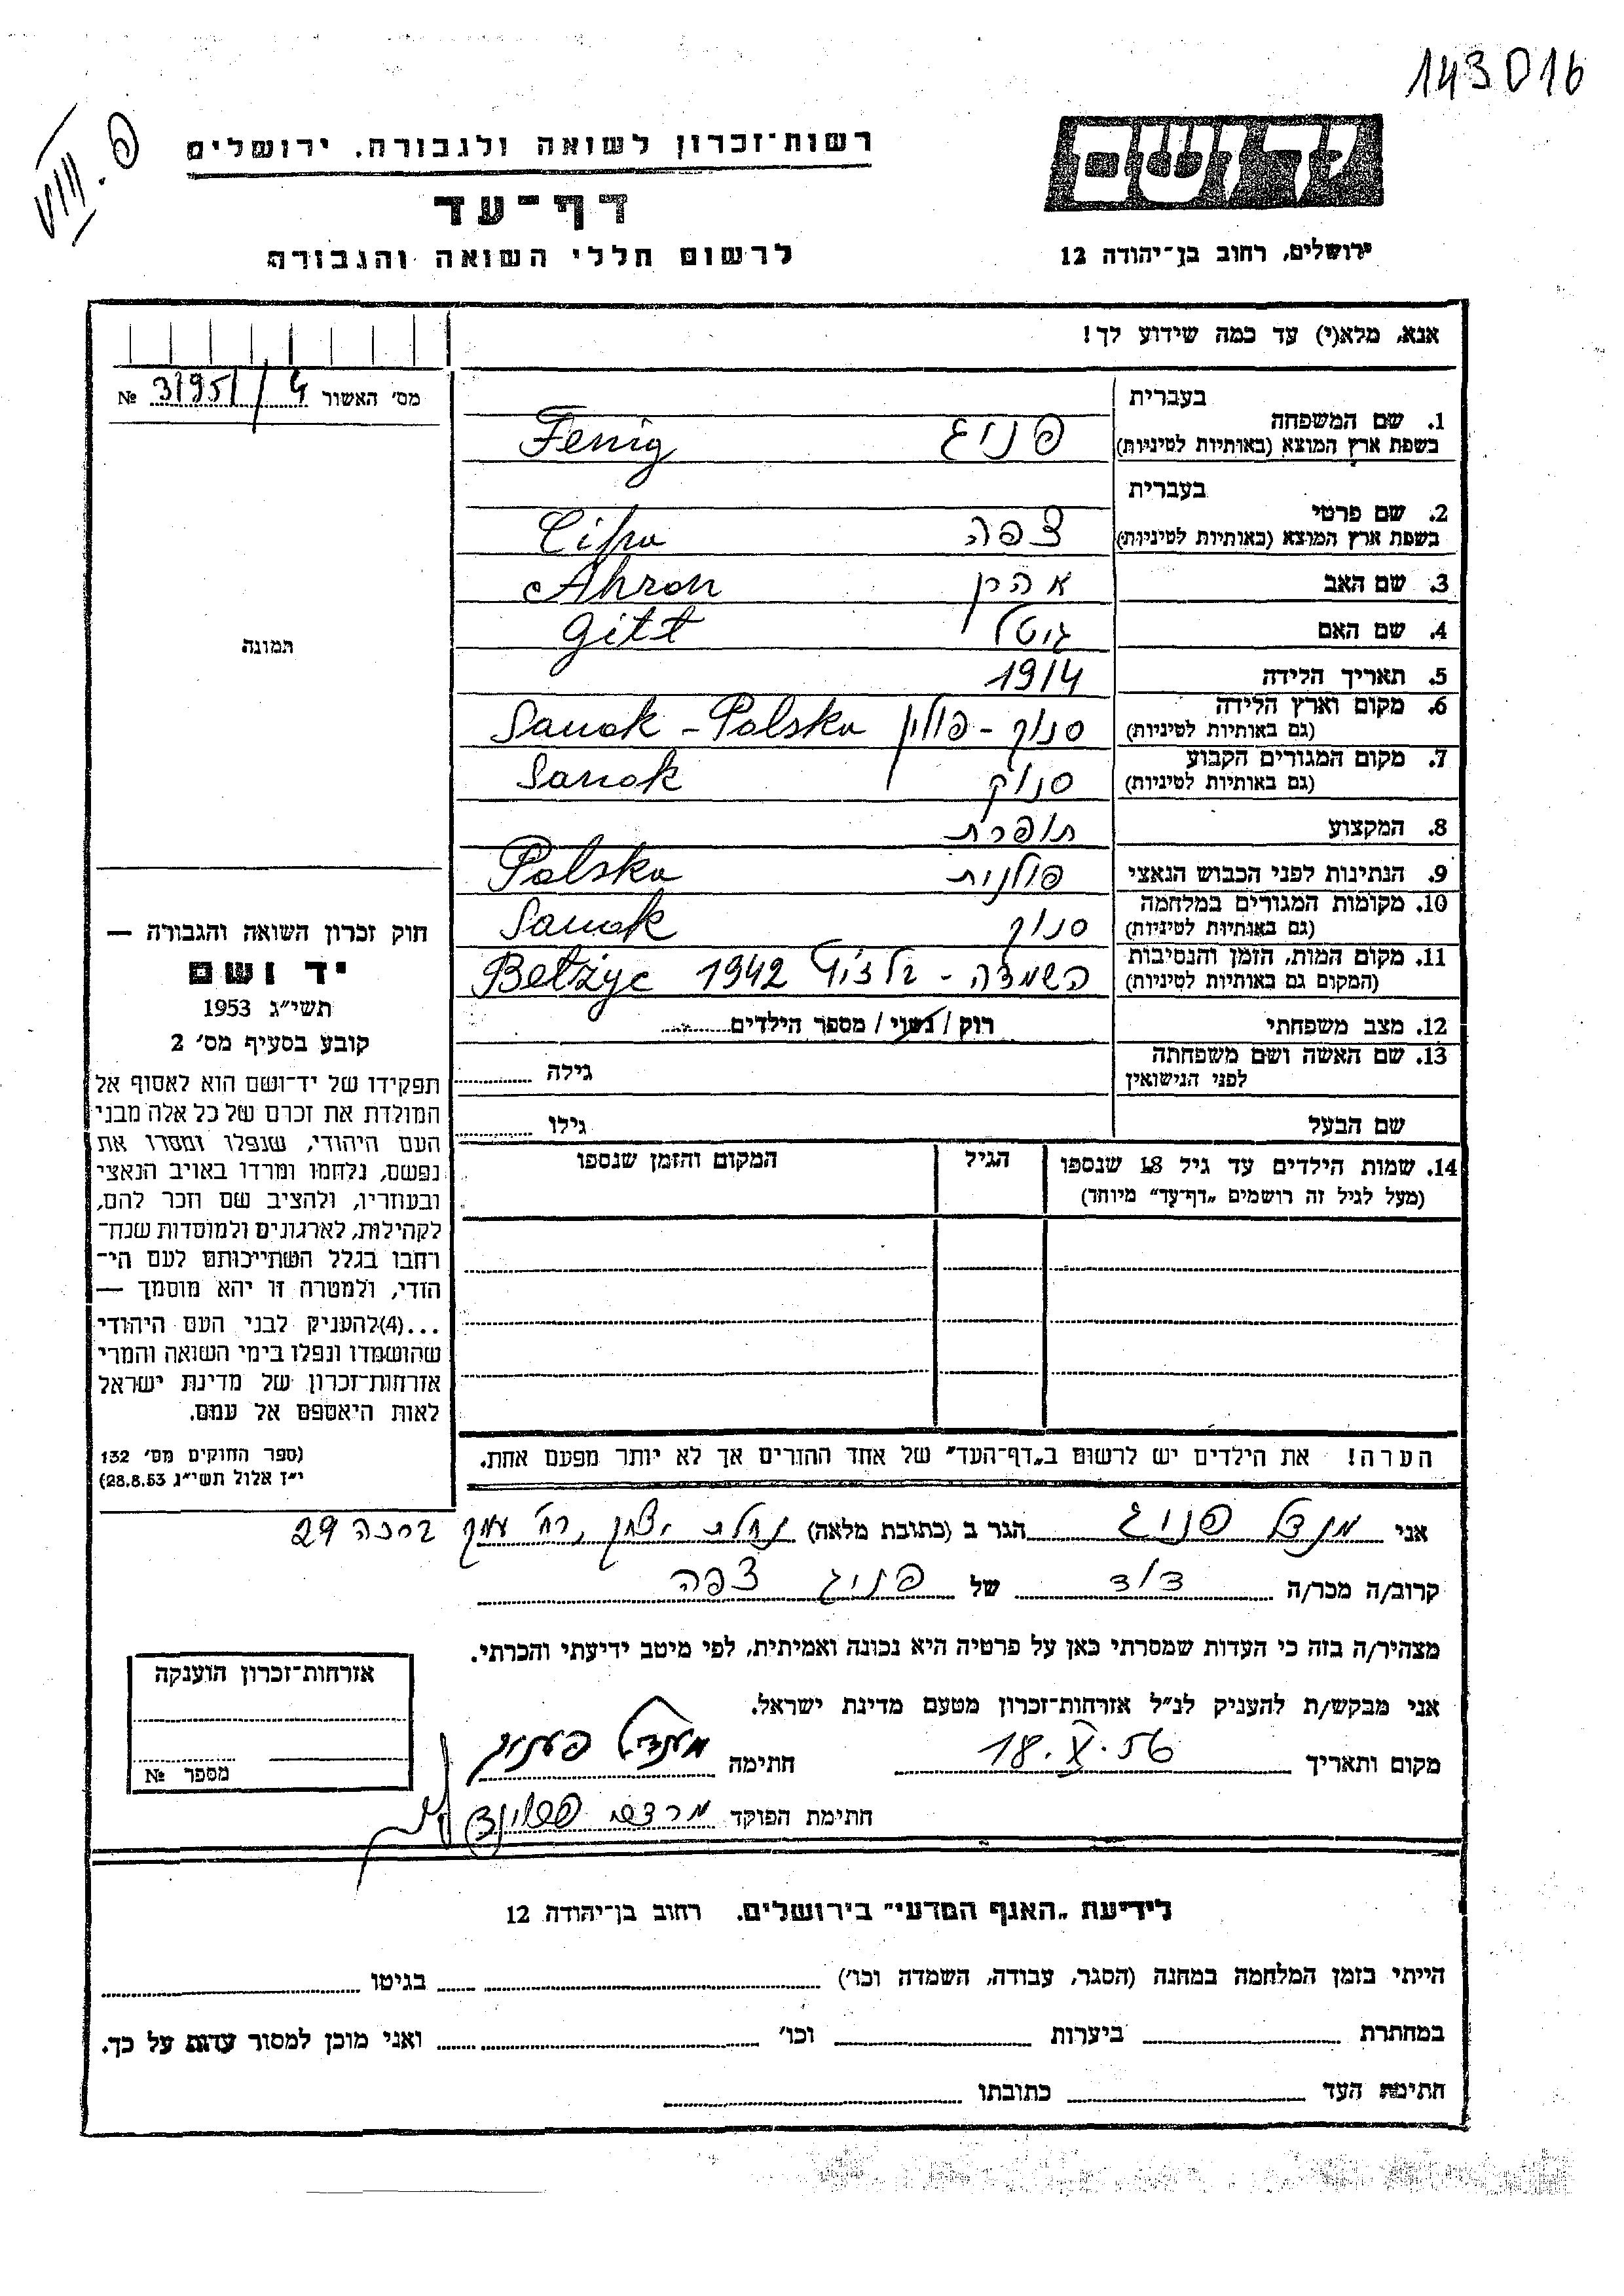 143016
פ. VIII
יד ושם
ירושלים, רחוב בן־יהודה 12
רשות־זכרון לשואה ולגבורה, ירושלים
דף־עד
לרשום חללי השואה והגבורה
אנא, מלא(י) עד כמה שידוע לך!
מס׳ האשור 31951/4 №
תמונה
בעברית
1. שם המשפחה
בשפת ארץ המוצא (באותיות לטיניות)
פניג Fenig
בעברית
2. שם פרטי
בשפת ארץ המוצא (באותיות לטיניות)
צפה Cipa
3. שם האב אהרן Ahron
4. שם האם גיטל Gitt
5. תאריך הלידה 1914
6. מקום וארץ הלידה
(גם באותיות לטיניות)
סנוק - פולין Sanok - Polska
7. מקום המגורים הקבוע
(גם באותיות לטיניות)
סנוק Sanok
8. המקצוע תופרת
9. הנתינות לפני הכבוש הנאצי פולנית Polska
10. מקומות המגורים במלחמה
(גם באותיות לטיניות)
סנוק Sanok
11. מקום המות, הזמן והנסיבות
(המקום גם באותיות לטיניות)
השמדה - 1942 Betżyc
12. מצב משפחתי רוק / נשוי / מספר הילדים
13. שם האשה ושם משפחתה
לפני הנישואין
גילה
שם הבעל גילו
14. שמות הילדים עד גיל 18 שנספו הגיל המקום והזמן שנספו
(מעל לגיל זה רושמים „דף־עד״ מיוחד)
הערה! את הילדים יש לרשום ב„דף־העד״ של אחד ההורים אך לא יותר מפעם אחת.
חוק זכרון השואה והגבורה —
יד ושם
תשי״ג 1953
קובע בסעיף מס׳ 2
תפקידו של יד־ושם הוא לאסוף אל
המולדת את זכרם של כל אלה מבני
העם היהודי, שנפלו ומסרו את
נפשם, נלחמו ומרדו באויב הנאצי
ובעוזריו, ולהציב שם וזכר להם,
לקהילות, לארגונים ולמוסדות שנח־
רחבו בגלל השתייכותם לעם הי־
הודי, ולמטרה זו יהא מוסמך —
...(4)להעניק לבני העם היהודי
שהושמדו ונפלו בימי השואה והמרי
אזרחות־זכרון של מדינת ישראל
לאות היאספם אל עמם.
(ספר החוקים מס׳ 132
י״ז אלול תשי״ג 28.8.53)
אני מנדל פניג הגר ב (כתובת מלאה) נחלת יצחק, רח׳ עמק ברכה 29
קרוב/ה מכר/ה דוד של פניג צפה
מצהיר/ה בזה כי העדות שמסרתי כאן על פרטיה היא נכונה ואמיתית, לפי מיטב ידיעתי והכרתי.
אני מבקש/ת להעניק לנ״ל אזרחות־זכרון מטעם מדינת ישראל.
מקום ותאריך 18.X.56 חתימה מענדל פעניג
חתימת הפוקד מרדכי
אזרחות־זכרון הוענקה
מספר №
לידיעת „האגף המדעי״ בירושלים. רחוב בן־יהודה 12
הייתי בזמן המלחמה במחנה (הסגר, עבודה, השמדה וכו׳) בגיטו
במחתרת ביערות וכו׳ ואני מוכן למסור עדות על כך.
חתימת העד כתובתו